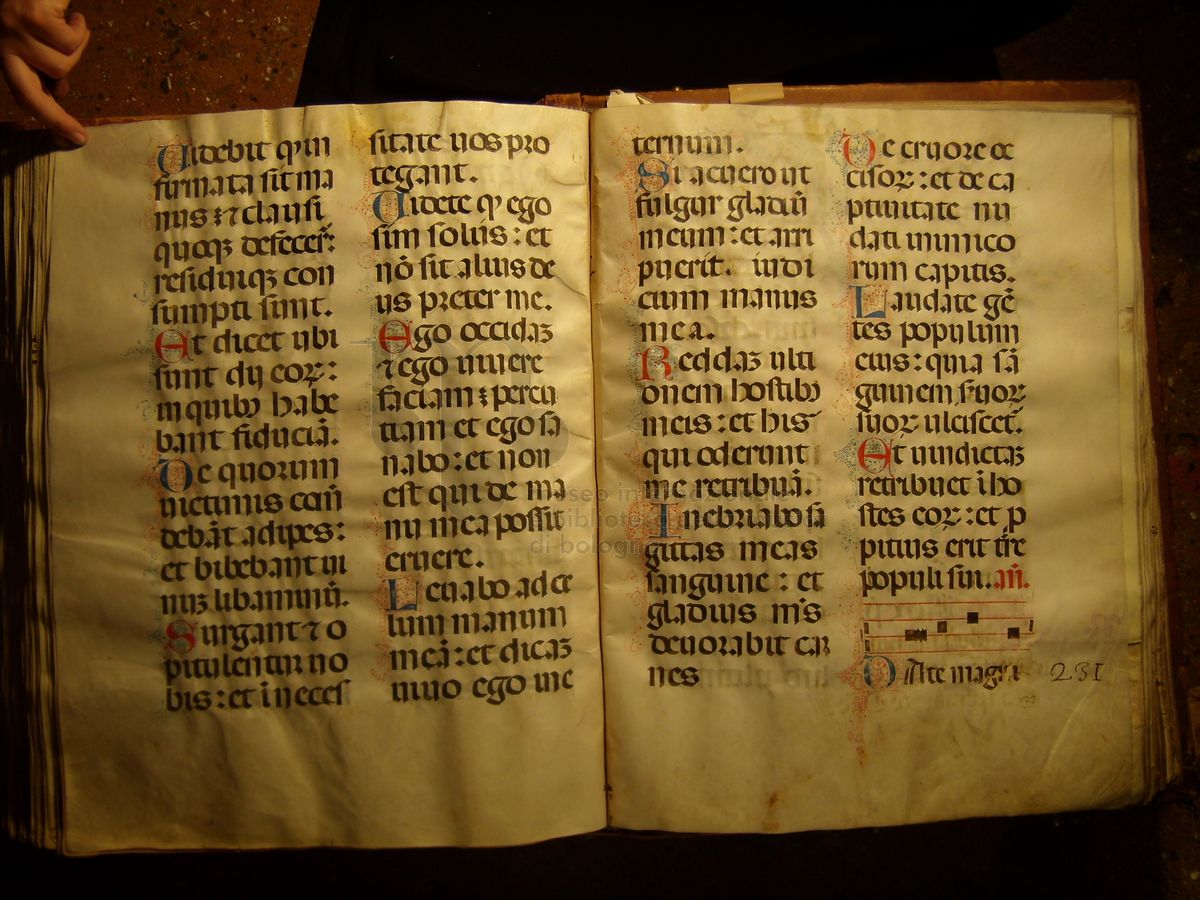 Uidebit qͥ in
firmata sit ma
nus : ⁊ clausi
quoqꝫ defecer̄:
residuiqꝫ con
sumpti sunt.
Et dicet ubi
sunt dij eoꝝ:
in quibꝰ habe
bant fiduciā.
De quorum
uictimis com̄
debāt adipes:
et bibebant ui
nuꝫ libaminū.
Surgant ⁊ o
pitulentur uo
bis: et ī neces
sitate uos pro
tegant.
Uidete qꝫ ego
sim solus: et
nō sit alius de
us preter me.
Ego occidaꝫ
⁊ ego uiuere
faciam : percu
tiam et ego sa
nabo: et non
est qui de ma
nu mea possit
eruere.
Leuabo ad ce
lum manum
meā: et dicaꝫ
uiuo ego in e
ternum.
Si acuero ut
fulgur gladiū
meum: et arri
puerit iudi
cium manus
mea.
Reddaꝫ ulti
onem hostibꝰ
meis: et his
qui oderunt
me retribuā.
Inebriabo sa
gittas meas
sanguine: et
gladius m̄s
deuorabit car
nes
De cruore oc
cisoꝝ: et de ca
ptiuitate nu
dati inimico
rum capitis.
Laudate gē
tes populum
eius: quia sā
guinem seruoꝝ
suoꝝ ulciscet̄.
Et uindictaꝫ
retribuet ī ho
stes eoꝝ: et p
pitius erit t̄re
populi sui. añ.
Date magni 231
museo internazionale
biblioteca
di bologna